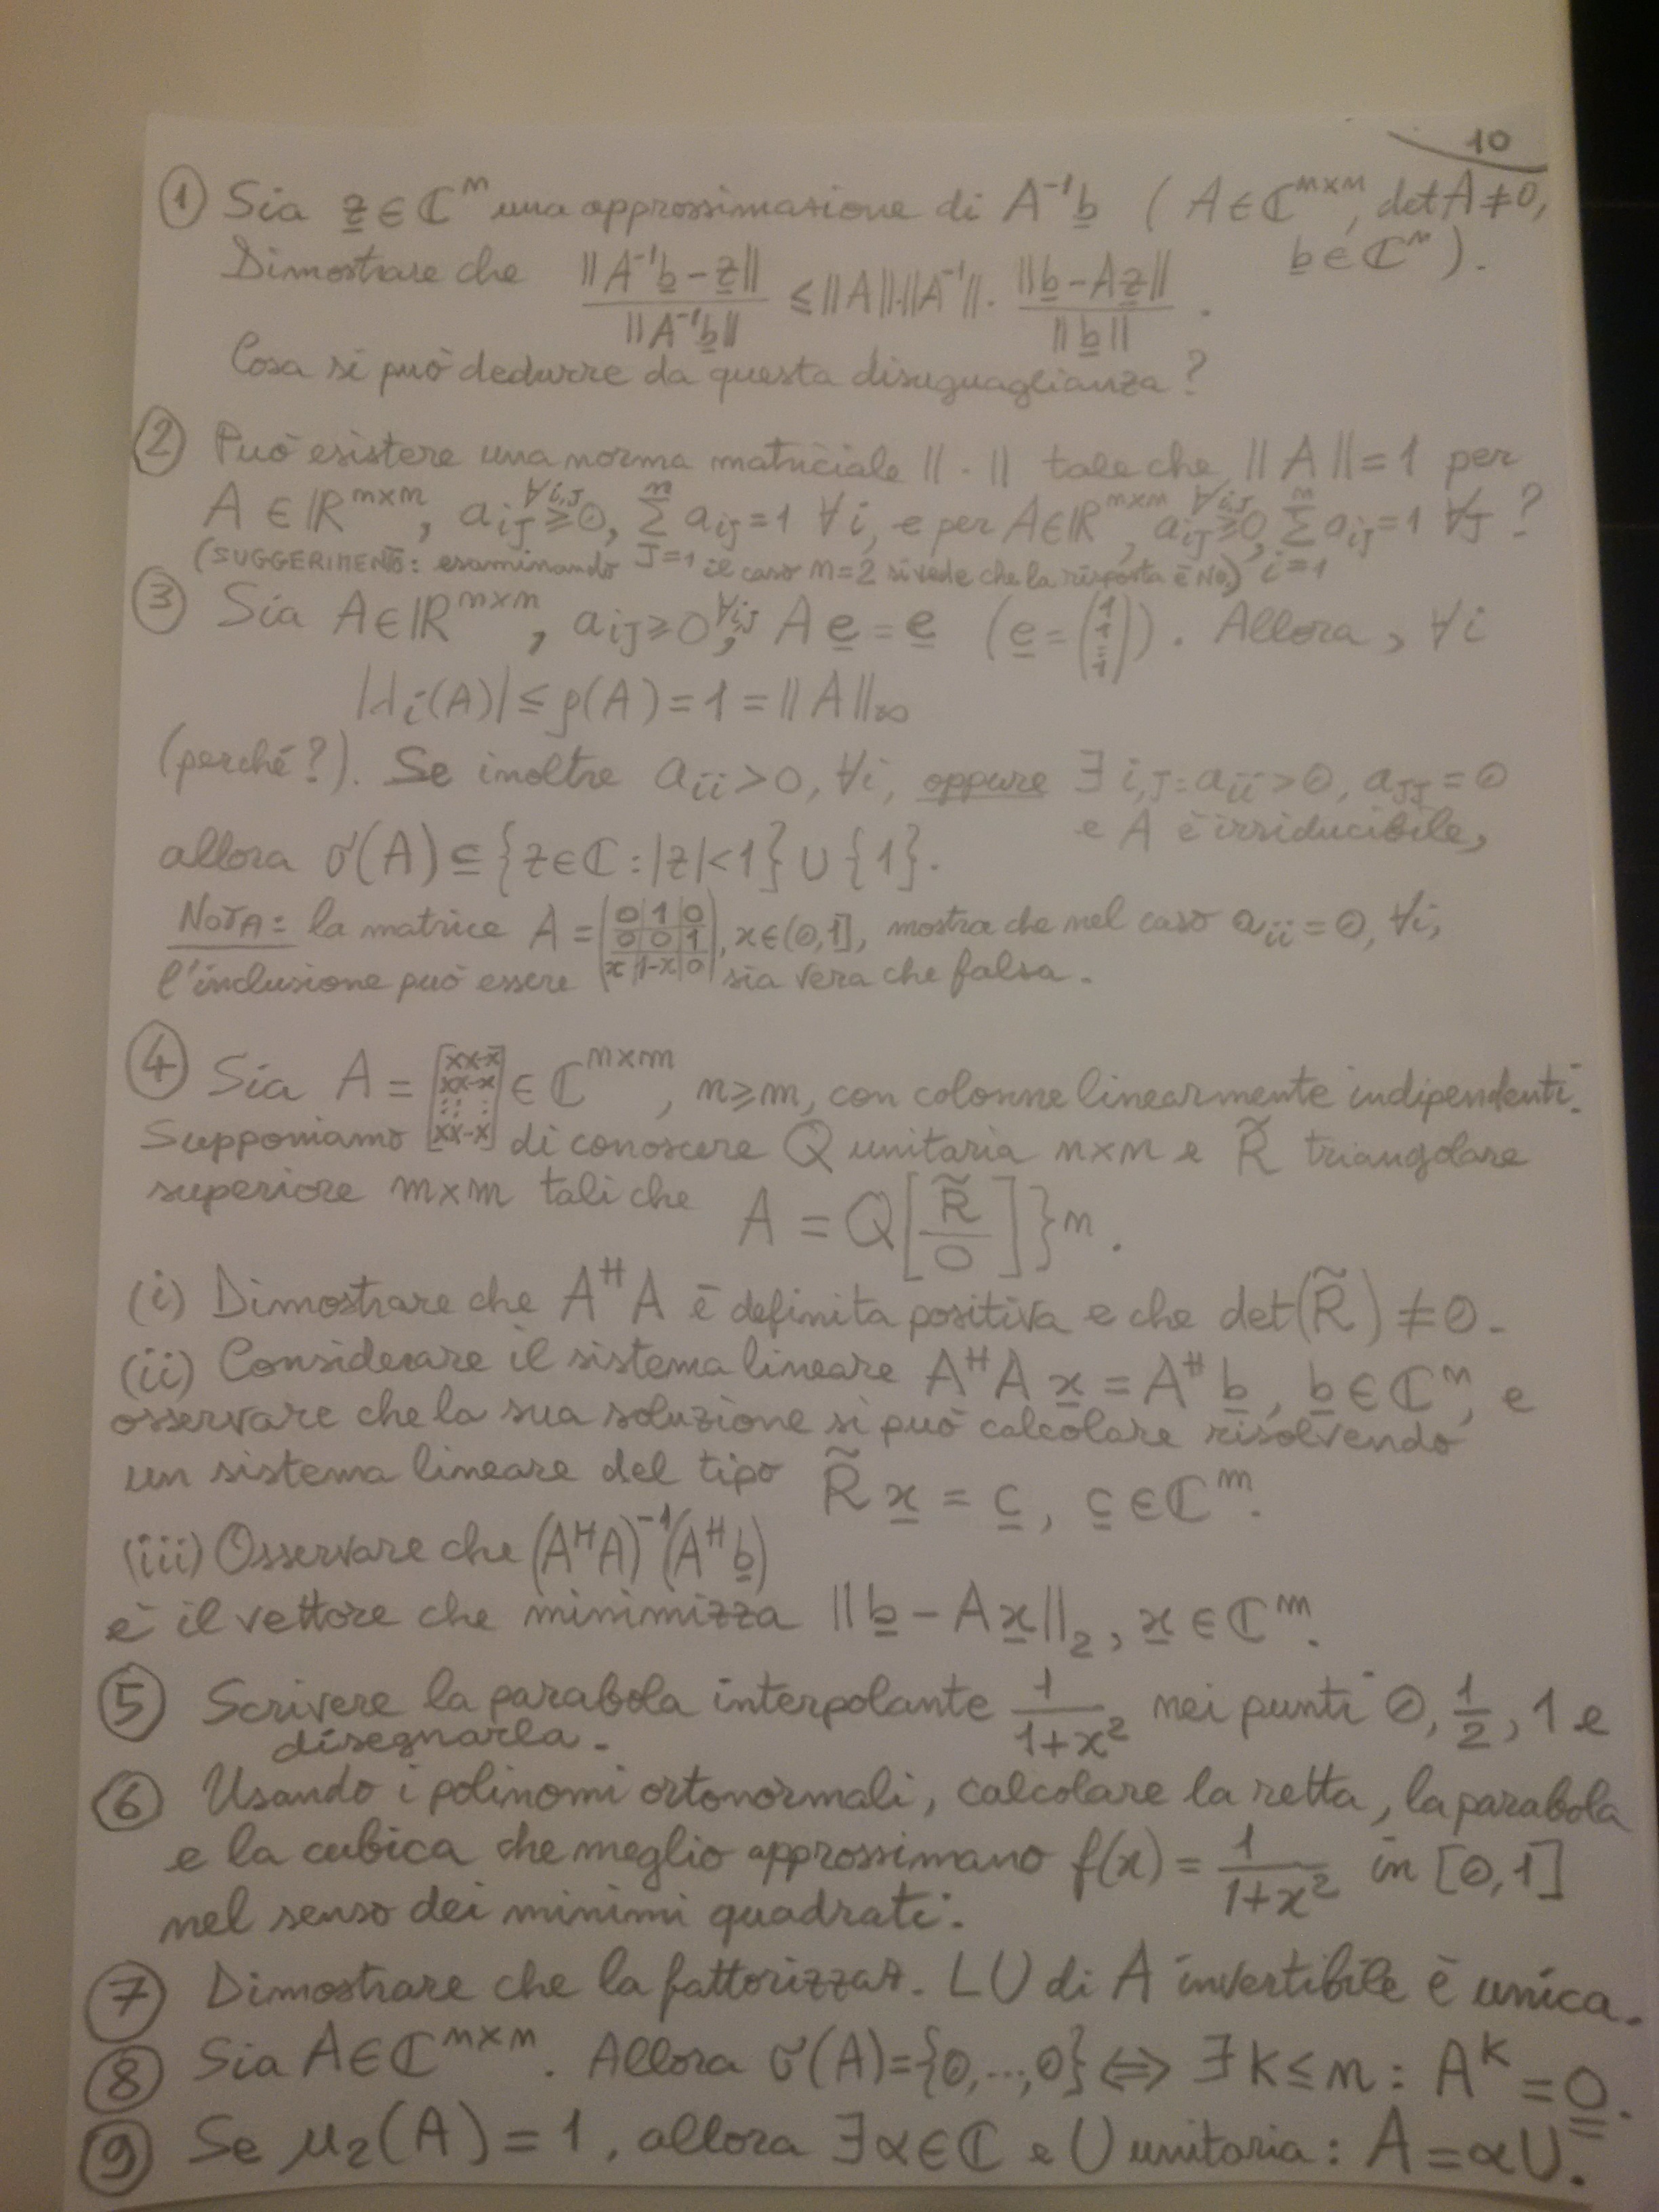 10
① Sia z ∈ ℂⁿ una approssimazione di A⁻¹b ( A ∈ ℂⁿˣⁿ, det A ≠ 0,
b ∈ ℂⁿ ).
Dimostrare che ‖A⁻¹b − z‖ / ‖A⁻¹b‖ ≤ ‖A‖·‖A⁻¹‖ · ‖b − Az‖ / ‖b‖ .
Cosa si può dedurre da questa disuguaglianza ?
② Può esistere una norma matriciale ‖ · ‖ tale che ‖A‖ = 1 per
A ∈ ℝⁿˣⁿ, aᵢⱼ ≥ 0 ∀i,j, ∑ⱼ₌₁ⁿ aᵢⱼ = 1 ∀i, e per A ∈ ℝⁿˣⁿ, aᵢⱼ ≥ 0 ∀i,j, ∑ᵢ₌₁ⁿ aᵢⱼ = 1 ∀j ?
(SUGGERIMENTO: esaminando il caso n=2 si vede che la risposta è NO.)
③ Sia A ∈ ℝⁿˣⁿ, aᵢⱼ ≥ 0 ∀i,j, A e = e ( e = (1 1 ⋮ 1) ). Allora, ∀i
|λᵢ(A)| ≤ ρ(A) = 1 = ‖A‖∞
(perché ?). Se inoltre aᵢᵢ > 0, ∀i, oppure ∃ i,j : aᵢᵢ > 0, aⱼⱼ = 0
e A è irriducibile,
allora σ(A) ⊆ {z ∈ ℂ : |z| < 1} ∪ {1}.
NOTA: la matrice A = (0 1 0 | 0 0 1 | x 1-x 0), x ∈ (0,1], mostra che nel caso aᵢᵢ = 0, ∀i,
l'inclusione può essere sia vera che falsa.
④ Sia A = [xx-x xx-x ⋮⋮ ⋮ xx-x] ∈ ℂⁿˣᵐ, n ≥ m, con colonne linearmente indipendenti.
Supponiamo di conoscere Q unitaria n×n e R̃ triangolare
superiore m×m tali che A = Q [R̃ / 0] } n .
(i) Dimostrare che Aᴴ A è definita positiva e che det(R̃) ≠ 0.
(ii) Considerare il sistema lineare Aᴴ A x = Aᴴ b, b ∈ ℂⁿ, e
osservare che la sua soluzione si può calcolare risolvendo
un sistema lineare del tipo R̃ x = c, c ∈ ℂᵐ.
(iii) Osservare che (AᴴA)⁻¹(Aᴴ b)
è il vettore che minimizza ‖b − A x‖₂, x ∈ ℂᵐ.
⑤ Scrivere la parabola interpolante 1/(1+x²) nei punti 0, 1/2, 1 e
disegnarla.
⑥ Usando i polinomi ortonormali, calcolare la retta, la parabola
e la cubica che meglio approssimano f(x) = 1/(1+x²) in [0,1]
nel senso dei minimi quadrati.
⑦ Dimostrare che la fattorizzaz. LU di A invertibile è unica.
⑧ Sia A ∈ ℂⁿˣⁿ. Allora σ(A) = {0,..,0} ⇔ ∃ k ≤ n : Aᵏ = 0.
⑨ Se μ₂(A) = 1, allora ∃ α ∈ ℂ e U unitaria : A = αU.